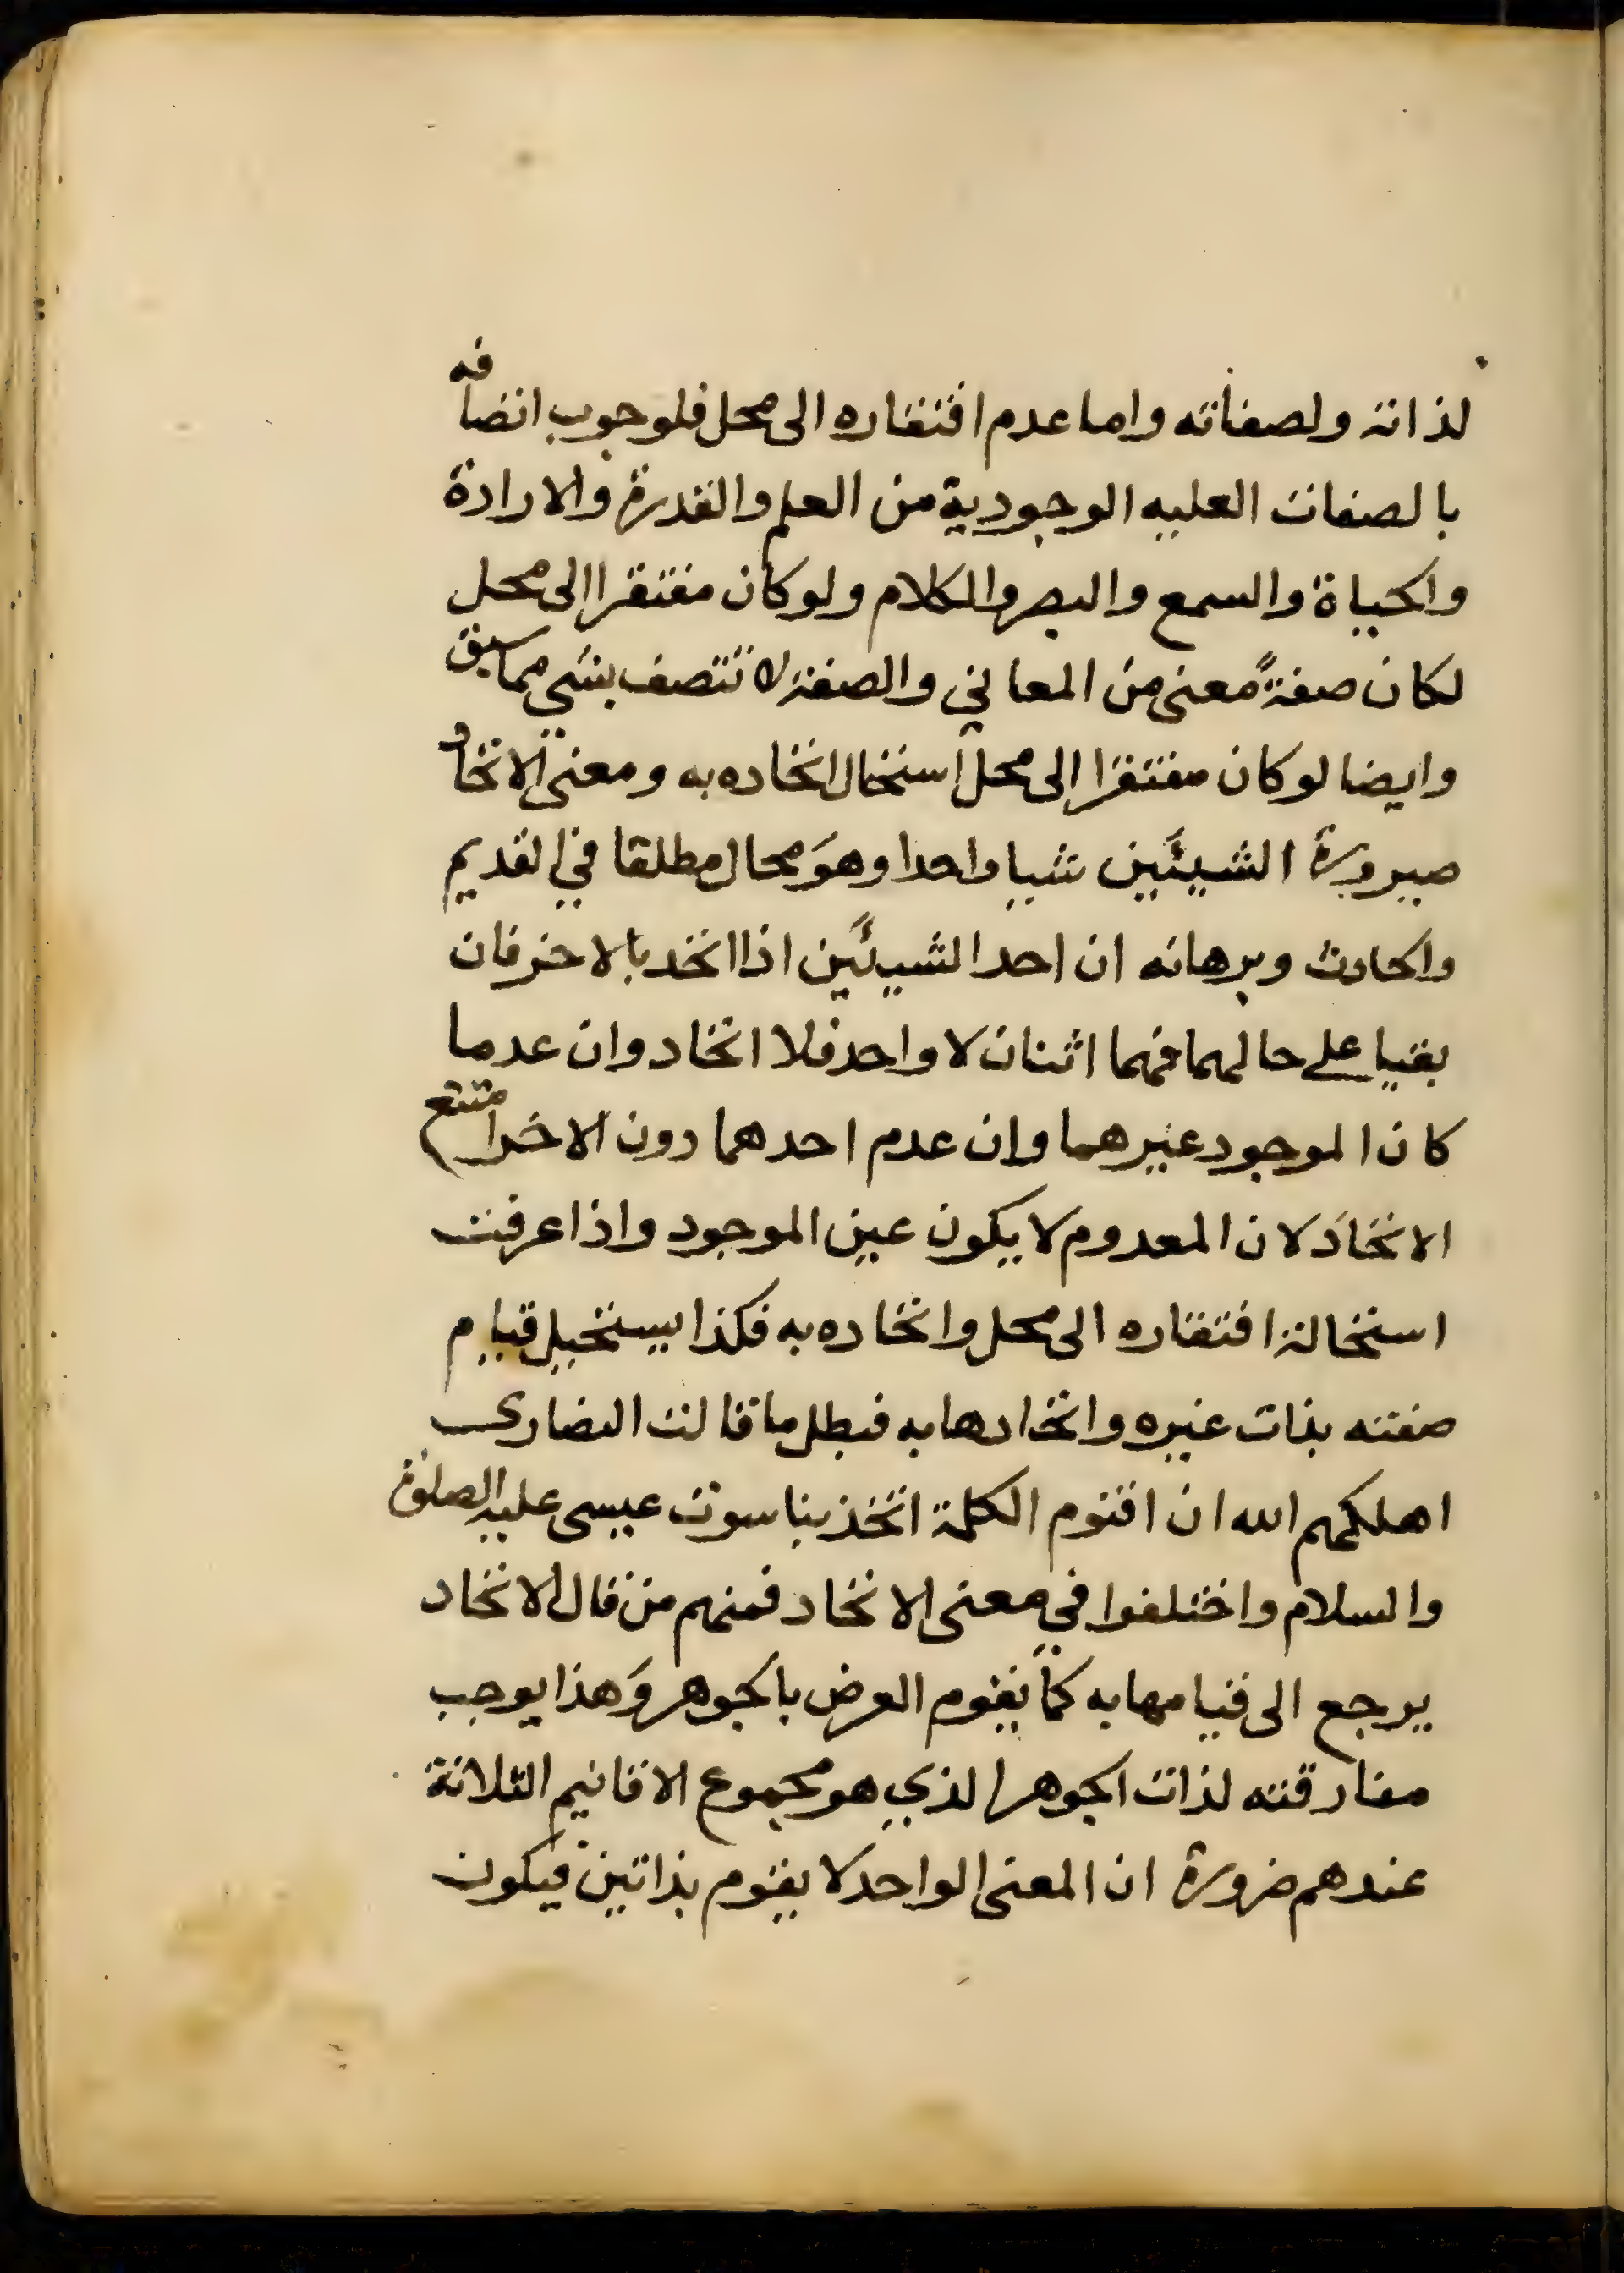 لذاته ولصفاته واما عدم افتقاره الى محل فلوجوب اتصافه
بالصفات العليه الوجودية من العلم والقدرة والارادة
والحياة والسمع والبصر والكلام ولو كان مفتقرا الى محل
لكان صفةً معنى من المعاني والصفة لا تتصف بشي مما سبق
وايضا لو كان مفتقرا الى محل استحال اتحاده به ومعنى الاتحاد
صيرورة الشيئين شيا واحدا وهوَ محال مطلقا في القديم
والحادث وبرهانه ان احد الشيئين اذا اتحد بالاخر فان
بقيا على حالهما فهما اثنان لا واحد فلا اتحاد وان عدما
كان الموجود غيرهما وان عدم احدهما دون الاخر امتنع
الاتحادَ لان المعدوم لا يكون عين الموجود واذا عرفت
استحالة افتقاره الى محل واتحاده به فكذا يستحيل قيام
صفته بذات غيره واتحادها به فبطل ما قالت النصارى
اهلكهم الله ان اقنوم الكلمة اتخذ بناسوت عيسى عليه الصلوة
والسلام واختلفوا في معنى الاتحاد فمنهم من قال الاتحاد
يرجع الى قيامها به كما يقوم العرض بالجوهر وَهذا يوجب
مفارقته لذات الجوهر الذي هو مجموع الاقانيم الثلاثة
عندهم ضرورة ان المعنى الواحد لا يقوم بذاتين فيكون